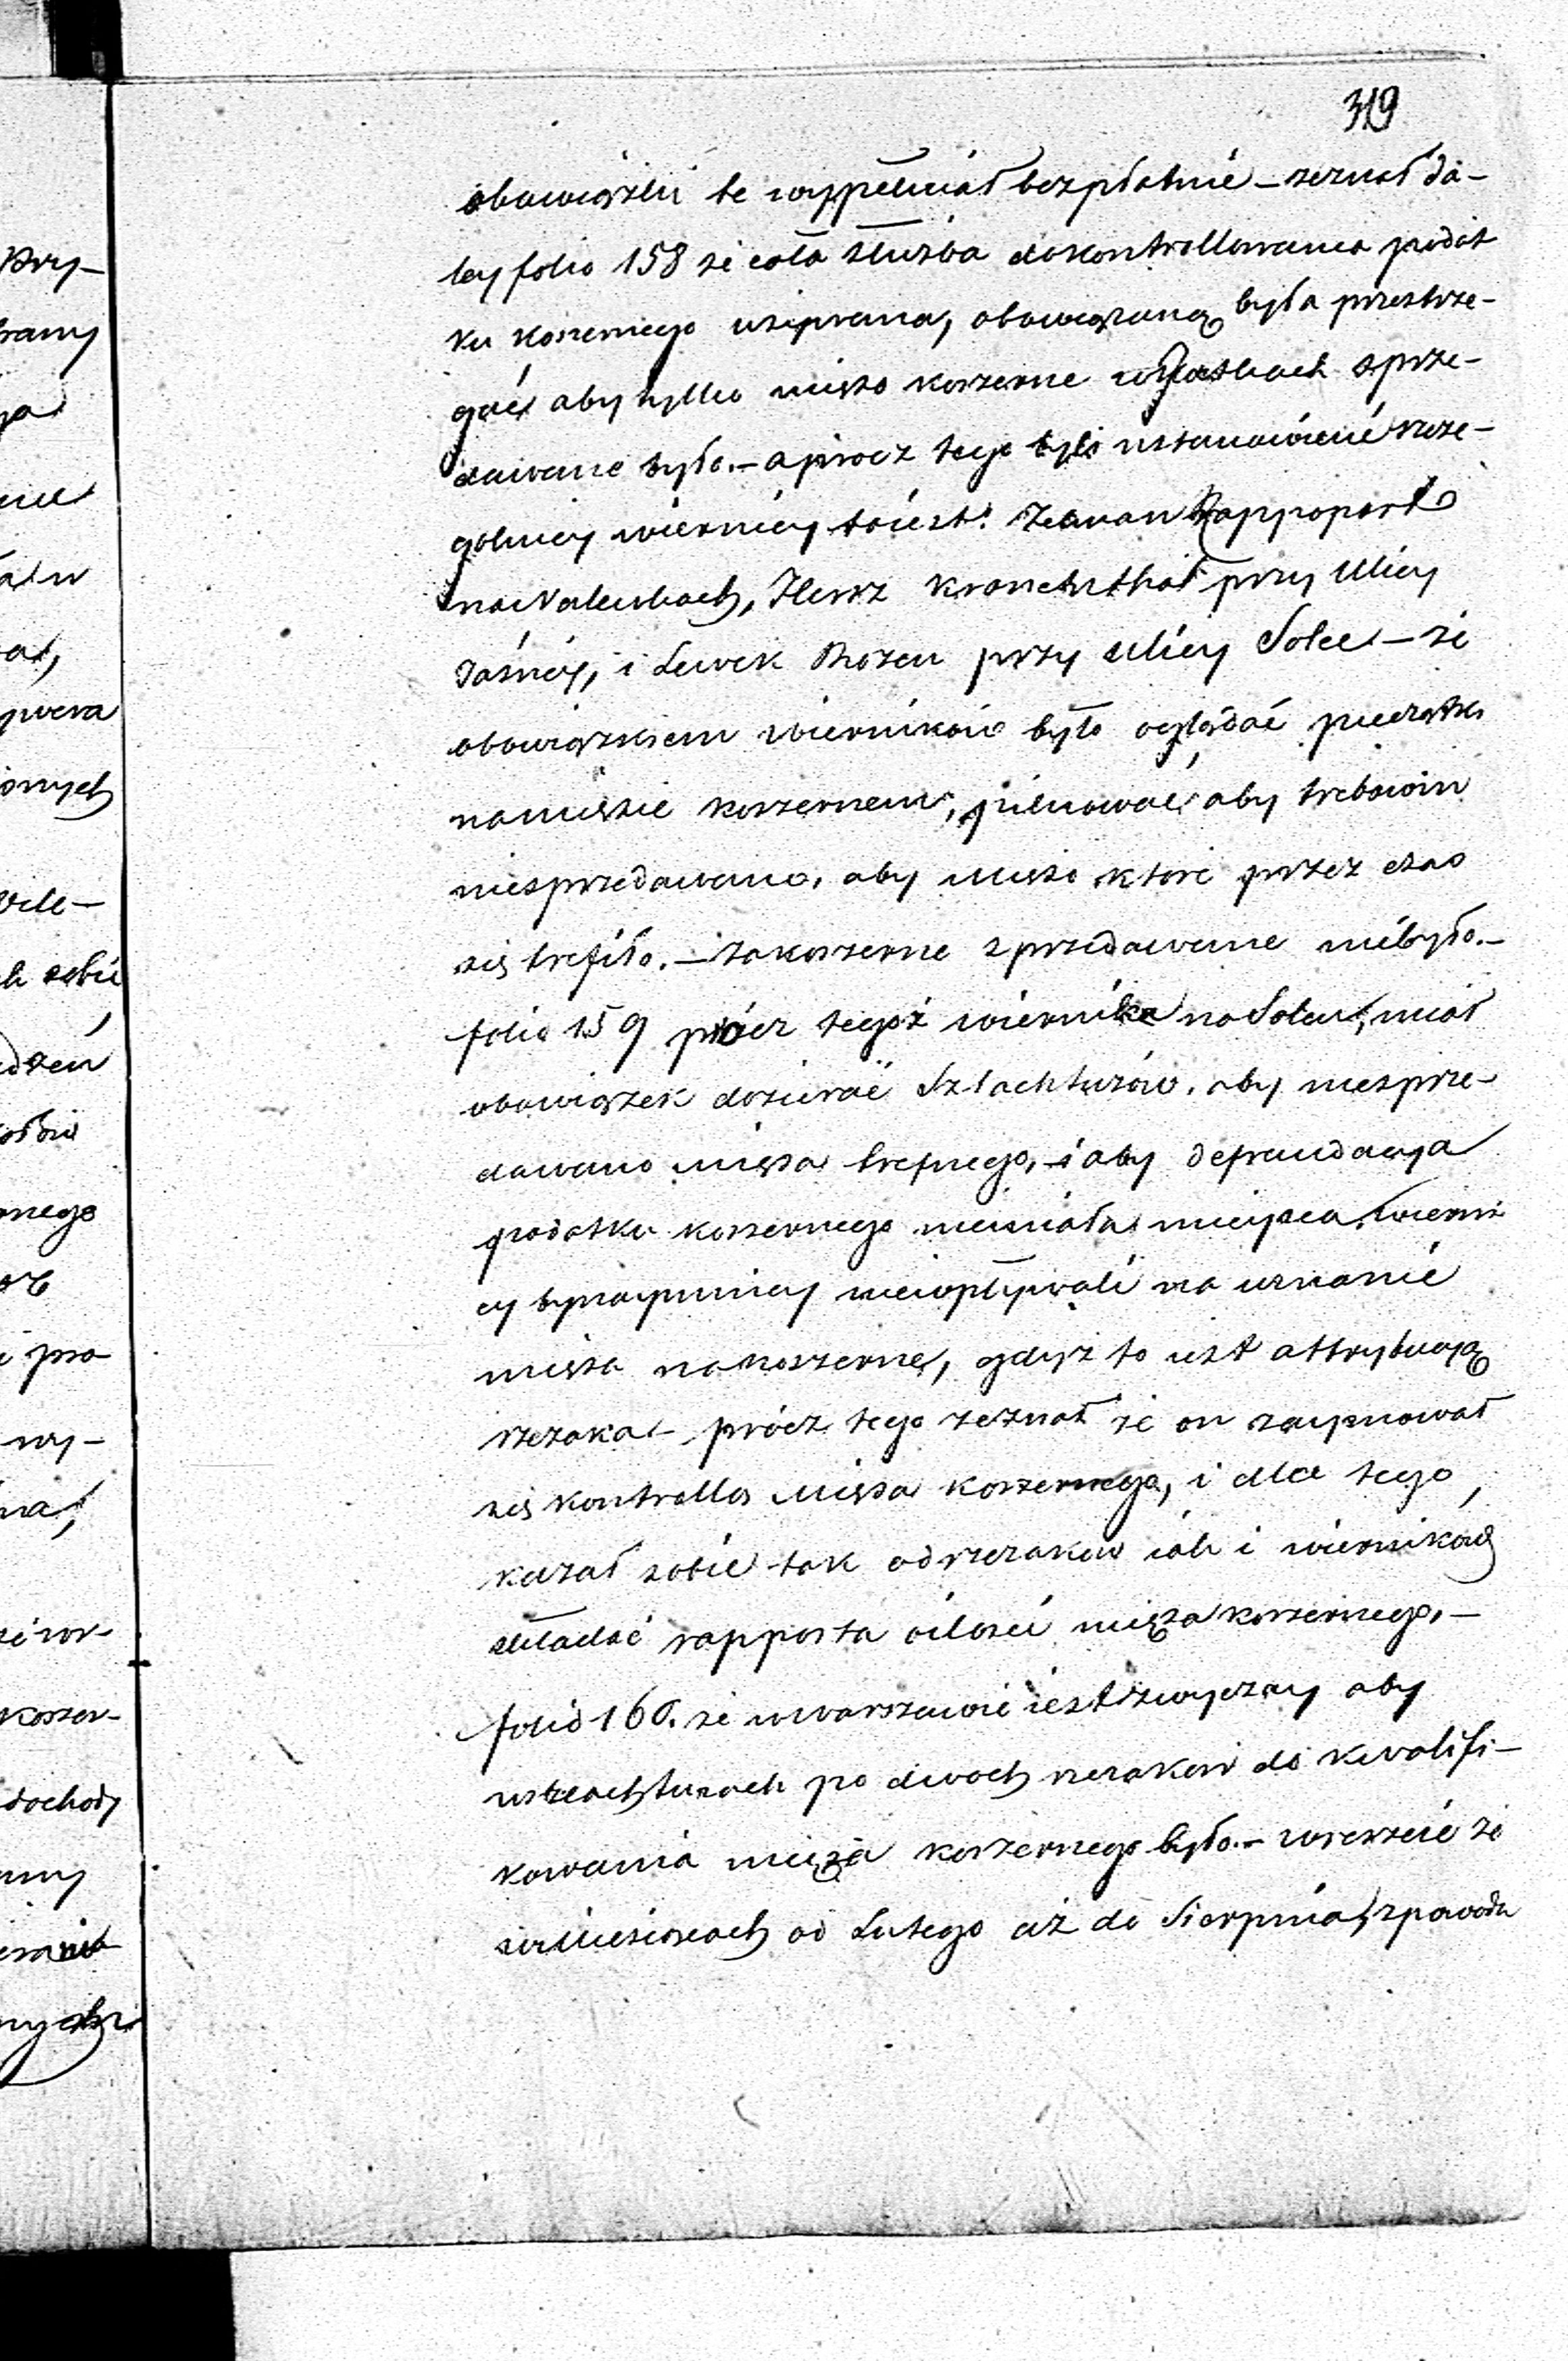 319
obowiązki te wypełniał bezpłatnie – zeznał da-
ley folio 158 że cała służba do kontrollowania podat
ku koszernego używana, obowiązaną była przestrze-
gać aby tylko mięso koszerne w jatkach sprze-
dawane było. – a prócz tego byli ustanowieni szcze-
gólniey wiernicy to iest: Rappoport
na Nalewkach, Hersz Kronenthal przy Ulicy
Jasnéy, i Lewek Rozen przy ulicy Solec – że
obowiązkiem wierników było oglądać pieczątki
na mięsie koszernem, pilnować aby trebowin
niesprzedawano, aby mięso które przez czas
się trefiło. – za koszerne sprzedawane niebyło. –
folio 159 prócz tegoż wiernika na Solcu, miał
obowiązek dozierać Szlachtuzów. aby niesprze-
dawano mięsa trefnego, i aby defraudacya
podatku koszernego niemiała mieysca, wierni
cy bynaymniey niewpływali na uznanie
mięsa na koszerne, gdyż to iest attrybucyą
rzezaka – prócz tego zeznał że on zaymował
się kontrollą mięsa koszernego, i dla tego
kazał sobie tak od rzezaków iak i wierników
składać rapporta o ilości mięsa koszernego. –
folio 160. że w Warszawie iest zwyczay aby
w szlachtuzach po dwóch rzezaków do kwalifi-
kowania mięsa koszernego było. – wreszcie że
w miesiącach od Lutego aż do Sierpnia, z powodu
Pry-
onych
sobie
onego
pra
wy-
koszer-
dochody